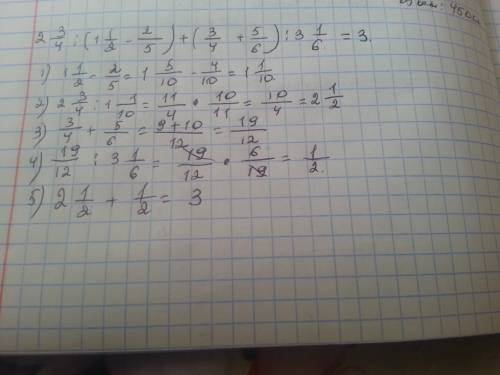 : 450
2 3/4 : (1 1/2 - 2/5) + (3/4 + 5/6) : 3 1/6 = 3.
1) 1 1/2 - 2/5 = 1 5/10 - 4/10 = 1 1/10
2) 2 3/4 : 1 1/10 = 11/4 • 10/11 = 10/4 = 2 1/2
3) 3/4 + 5/6 = 9+10/12 = 19/12
4) 19/12 : 3 1/6 = 19/12 • 6/19 = 1/2.
5) 2 1/2 + 1/2 = 3